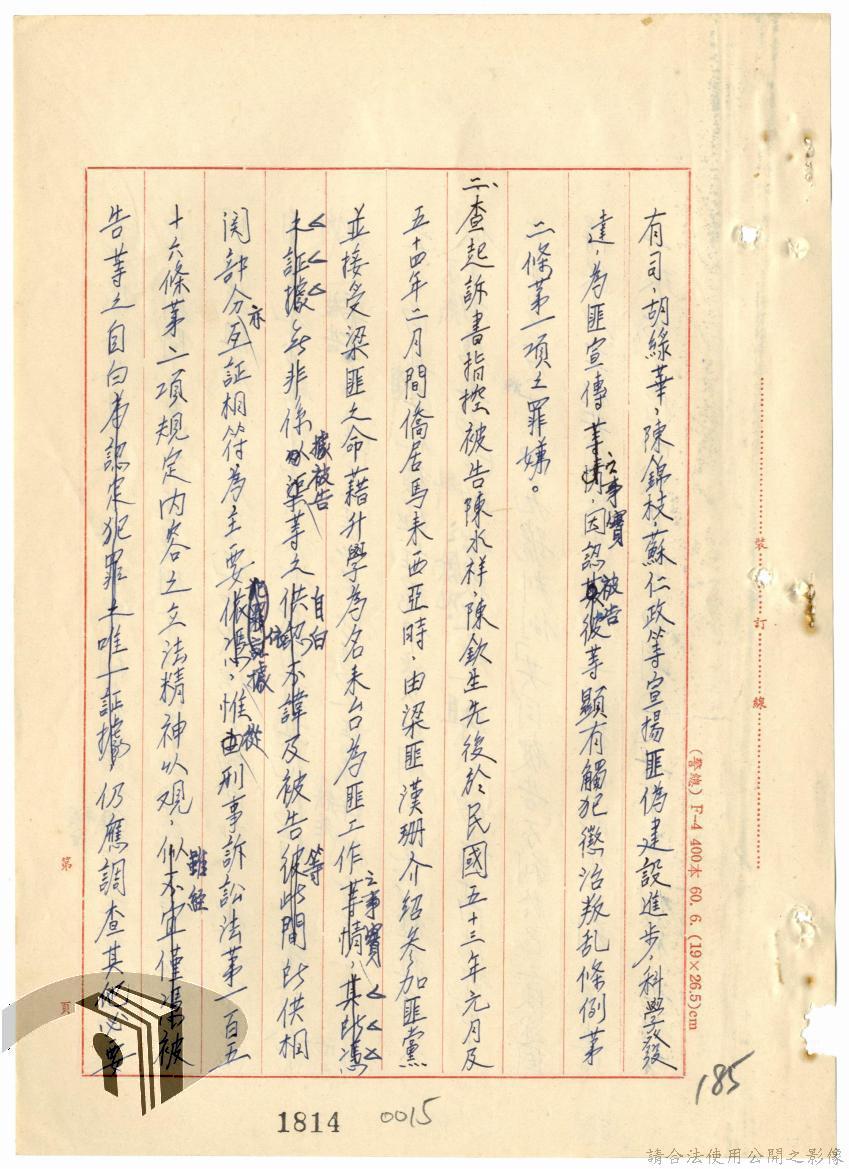 有司，胡綠華，陳錦枝，蘇仁政等宣揚匪偽建設進步，科學發
達，為匪宣傳等情之事實，因認其被告彼等顯有觸犯懲治叛乱條例第
二條第一項之罪嫌。
二、查起訴書指控被告陳水祥，陳欽生先後於民國五十三年元月及
五十四年二月間僑居馬来西亞時，由梁匪漢珊介紹参加匪黨
並接受梁匪之命藉升學為名来台為匪工作等情之事實，其所憑
証據無非係以據被告渠等之供認不諱自白及被告彼此間等所供相
関部分亦互証相符為主要依憑犯罪証據，惟由從刑事訴訟法第一百五
十六條第二項規定內容之立法精神以观，似不宜僅憑雖經被
告等之自白為認定犯罪之唯一証據，仍應調查其他必要
裝
訂
線
(警總) F-4 400本 60. 6. (19×26.5)cm
第
頁
185
1814
0015
請合法使用公開之影像